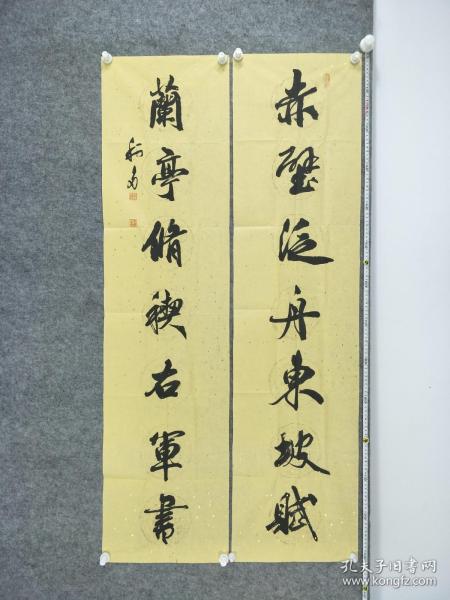 赤壁泛舟東坡賦
蘭亭脩禊右軍書
孔夫子旧书网
www.kongfz.com